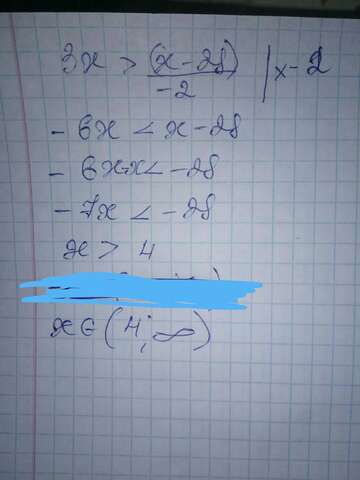 3x > (x-28)/-2 | x-2
-6x < x-28
-6x-x < -28
-7x < -28
x > 4
x∈(4;∞)